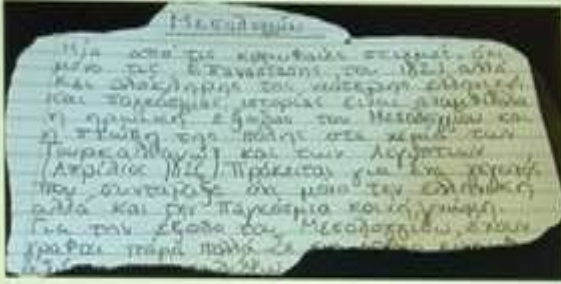 Μεσολόγγι
Μία από τις κορυφαίες στιγμές όχι
μόνο της επανάστασης του 1821 αλλά
και ολόκληρης της νεότερης ελληνικής
και παγκόσμιας ιστορίας είναι αναμφίβολα
η ηρωική έξοδος του Μεσολογγίου και
η πτώση της πόλης στα χέρια των
Τουρκαλβανών και των Αιγυπτίων
(Απρίλιος 1826) Πρόκειται για ένα γεγονός
που συντάραξε όχι μόνο την ελληνική
αλλά και την παγκόσμια κοινή γνώμη.
Για την έξοδο του Μεσολογγίου, έχουν
γραφτεί πάρα πολλά